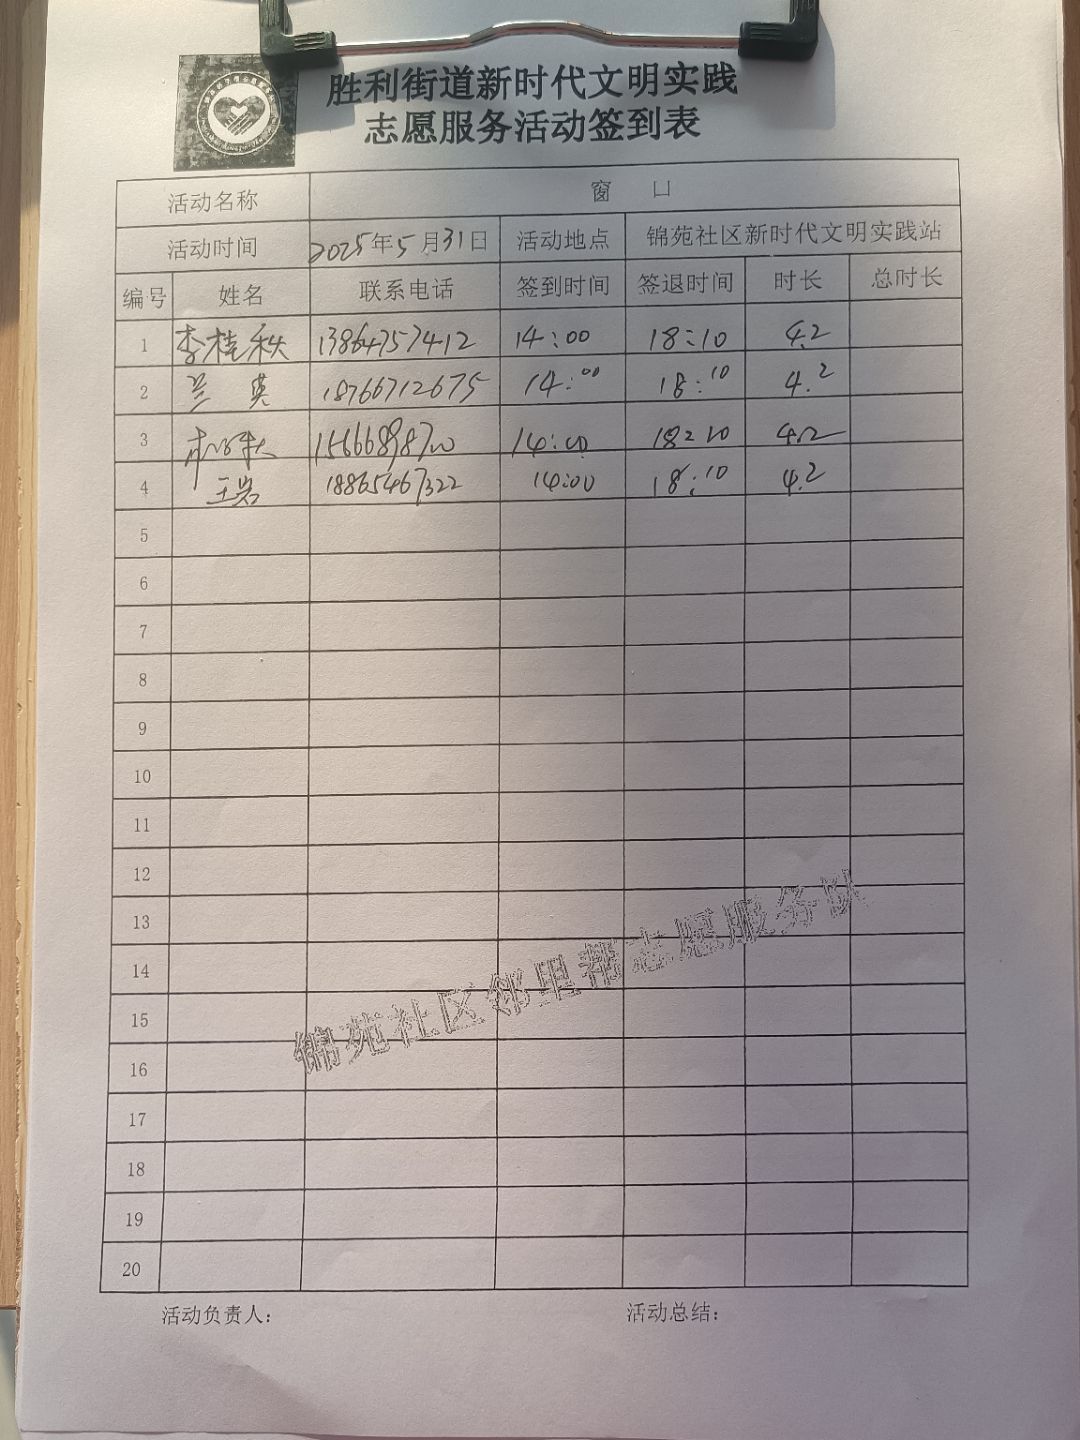 胜利街道新时代文明实践
志愿服务活动签到表
活动名称 窗 口
活动时间 2025年5月31日 活动地点 锦苑社区新时代文明实践站
编号 姓名 联系电话 签到时间 签退时间 时长 总时长
1 李桂秋 13864757412 14:00 18:10 4.2
2 兰英 18766712675 14:00 18:10 4.2
3 14:00 18:10 4.2
4 王岩 18865467322 14:00 18:10 4.2
5
6
7
8
9
10
11
12
13
14
15
16
17
18
19
20
锦苑社区邻里帮志愿服务队
活动负责人: 活动总结: